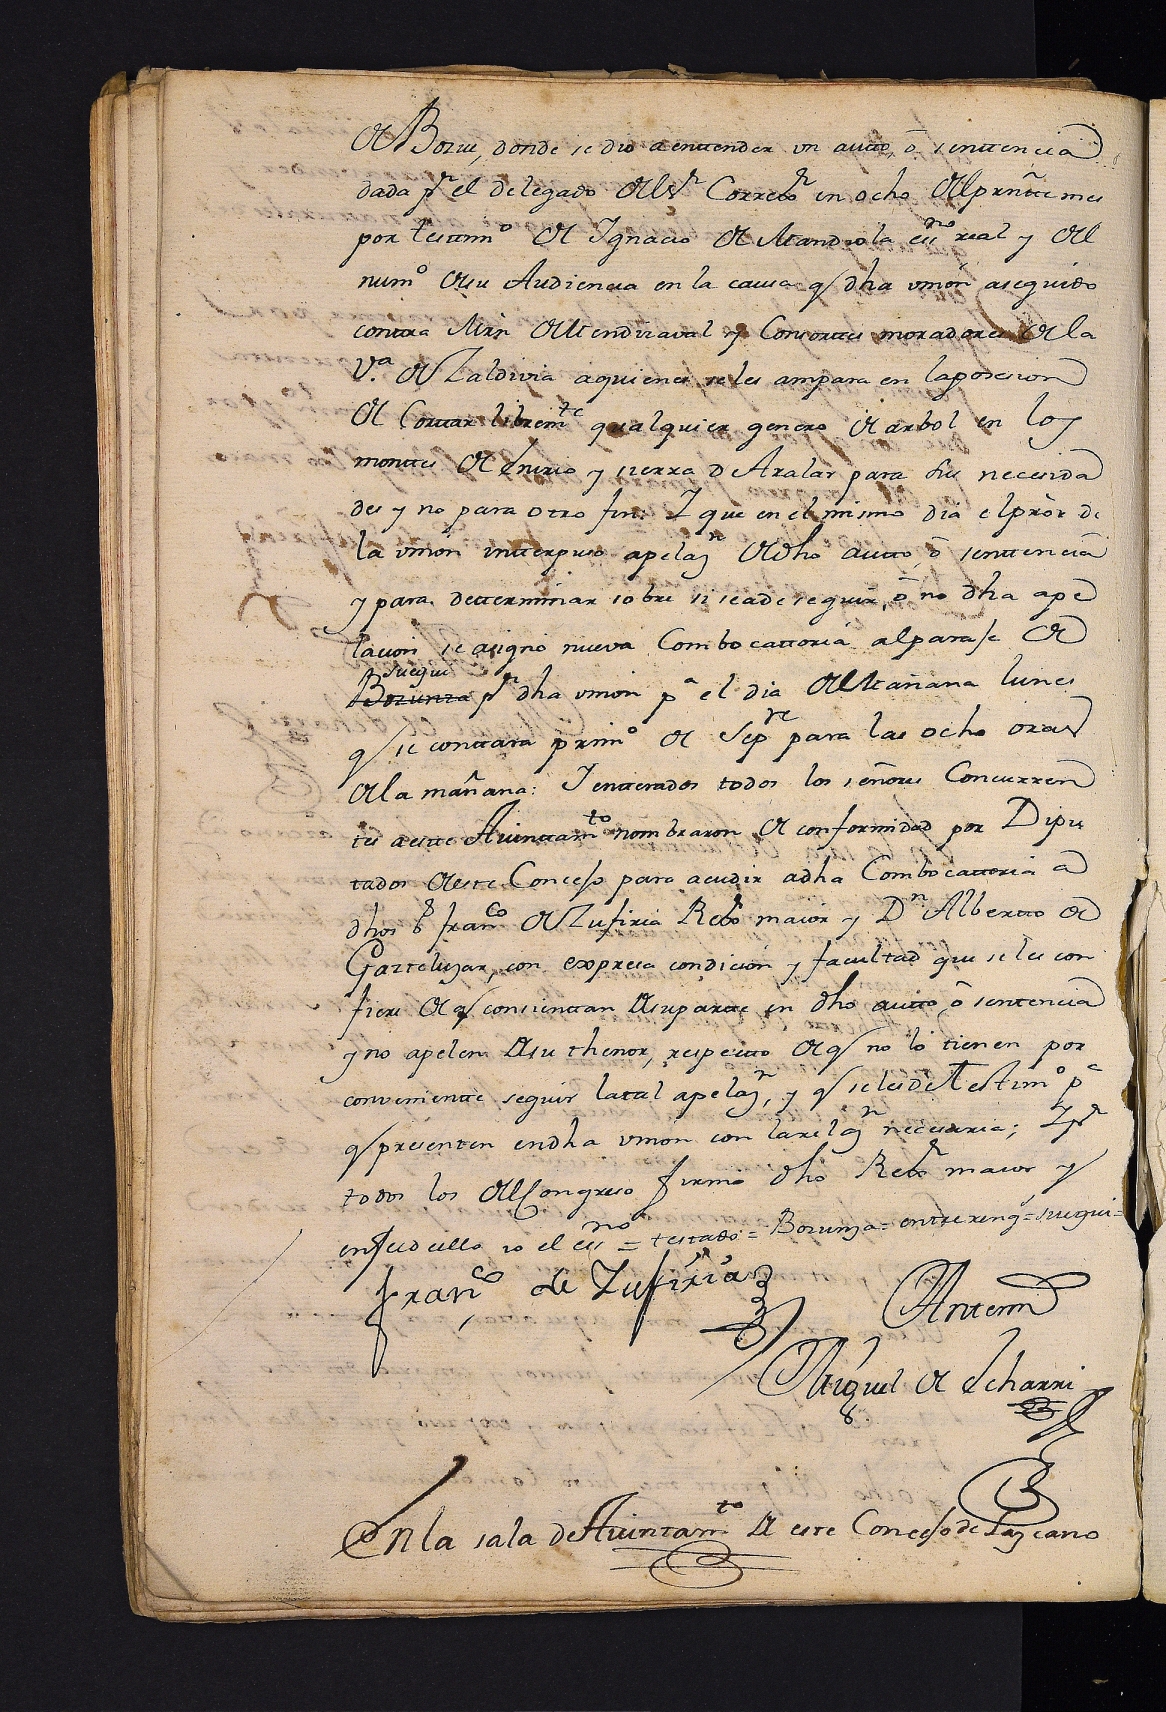 de Bozue, donde se dio a enttender un autto, ô senttencia
dada pr el delegado del Sr Corregr en ocho del prntte mes
por testimo de Ignacio de Mandiola essno real y del
numo de su Audiencia en la causa q dha union a seguido
contra Mrn de Mendizaval y Consortes moradores de la
Va de Zaldivia a quienes se les ampara en la posesion
de Corttar libremte qualquier genero de arbol en los
monttes de Enirio y sierra de Aralar para sus necesida
des y no para otro fin: Y que en el mismo dia el pror de
la union intterpuso apelazn de dho autto, ô senttencia
y para detterminar sobre si se a de seguir, ô no dha ape
lacion se asigno nueva Combocattoria al paraje de
suegui
Bozunza pr dha union pa el dia de Mañana lunes
q se conttara primo de Sepre para las ocho oras
de la mañana: Y entterados todos los señores Concurren
tes a estte Aiunttamto nombraron de conformidad por Dipu
tados de este Concejo para acudir a dha Combocattoria a
dhos Sr franco de Zufiria Regr maior y Dn Albertto de
Gazteluzar, con expresa condicion y facultad que se les con
fiere de q consienttan de su partte en dho autto, ô sentencia
y no apelen de su thenor, respectto de q no lo tienen por
convenientte seguir la tal apelazn, y q se les dé Testimo pa
q presenten en dha union con la relazn necesaria; Y pr
todos los del Congreso firmo dho Regr maior y
en fee de ello io el essno = testado = Bozunza = entre reng = suegui =
franco de Zufiria
Antemi
Miguel de Echarri
En la sala de Aiuntamto de este Concejo de Lazcano